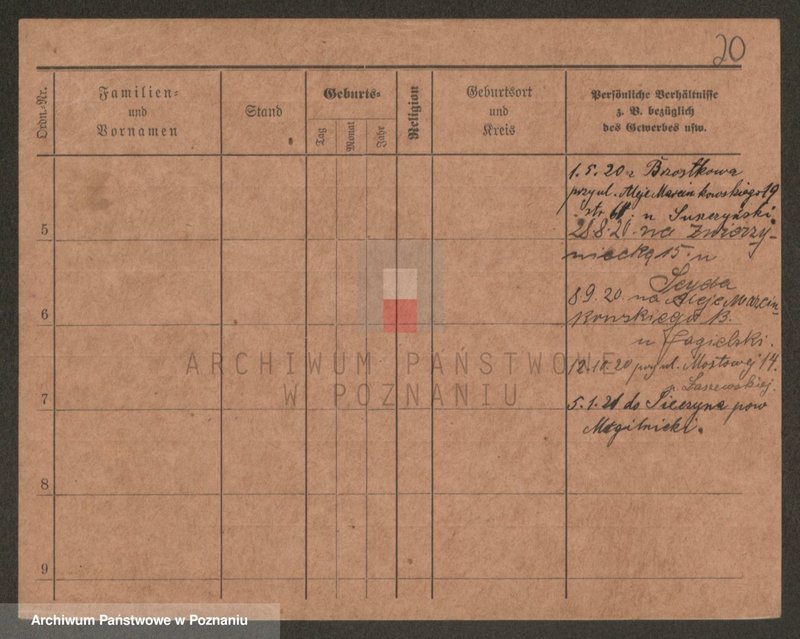 20
Ordn.-Nr.
Familien-
und
Vornamen
Stand
Geburts-
Tag
Monat
Jahr
Religion
Geburtsort
und
Kreis
Persönliche Verhältnisse
z. B. bezüglich
des Gewerbes usw.
1.5.20 z Brostkowa
przy ul. Aleje Marcinkowskiego 19
str. u Suszczyński.
5
28.8.20 na Zwierzy-
niecką 15. u
Seyda
8.9.20. na Aleje Marcin-
6
kowskiego 13.
u Jagielski.
ARCHIWUM PAŃSTWOWE
W POZNANIU
12.10.20 przy ul. Mostowej 14.
p. Laszewskiej
7
5.1.21 do Sieczyna pow
Mogilnicki.
8
9
Archiwum Państwowe w Poznaniu